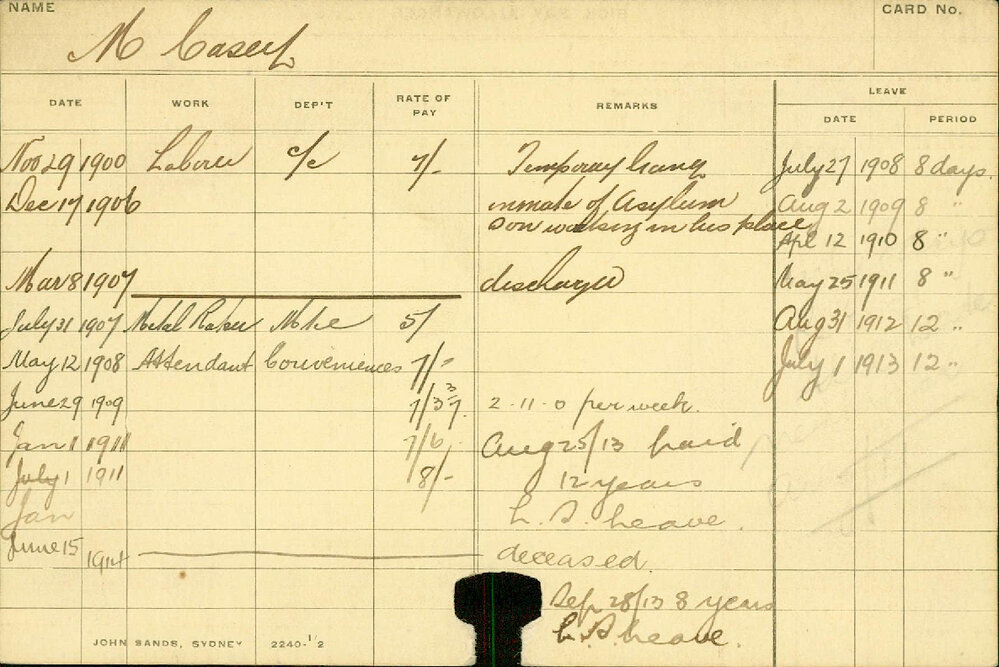 NAME CARD No.
M Casey
DATE WORK DEP'T RATE OF PAY REMARKS LEAVE
DATE PERIOD
Nov 29 1900 Laborer c/c 7/- Temporary Gang July 27 1908 8 days.
Dec 17 1906 inmate of Asylum Aug 2 1909 8 "
son working in his place
Apl 12 1910 8 "
Mar 8 1907 discharged May 25 1911 8 "
July 31 1907 Metal Raker Mtce 5/ Aug 31 1912 12 "
May 12 1908 Attendant Conveniences 7/- July 1 1913 12 "
June 29 1909 7/3 3/7 2-11-0 per week.
Jan 1 1911 7/6 Aug 25/13 paid
July 1 1911 8/- 12 years
Jan L. S. Leave.
June 15 1914 deceased.
Sep 28/13 8 years
L. S. Leave.
JOHN SANDS, SYDNEY 2240-1/2